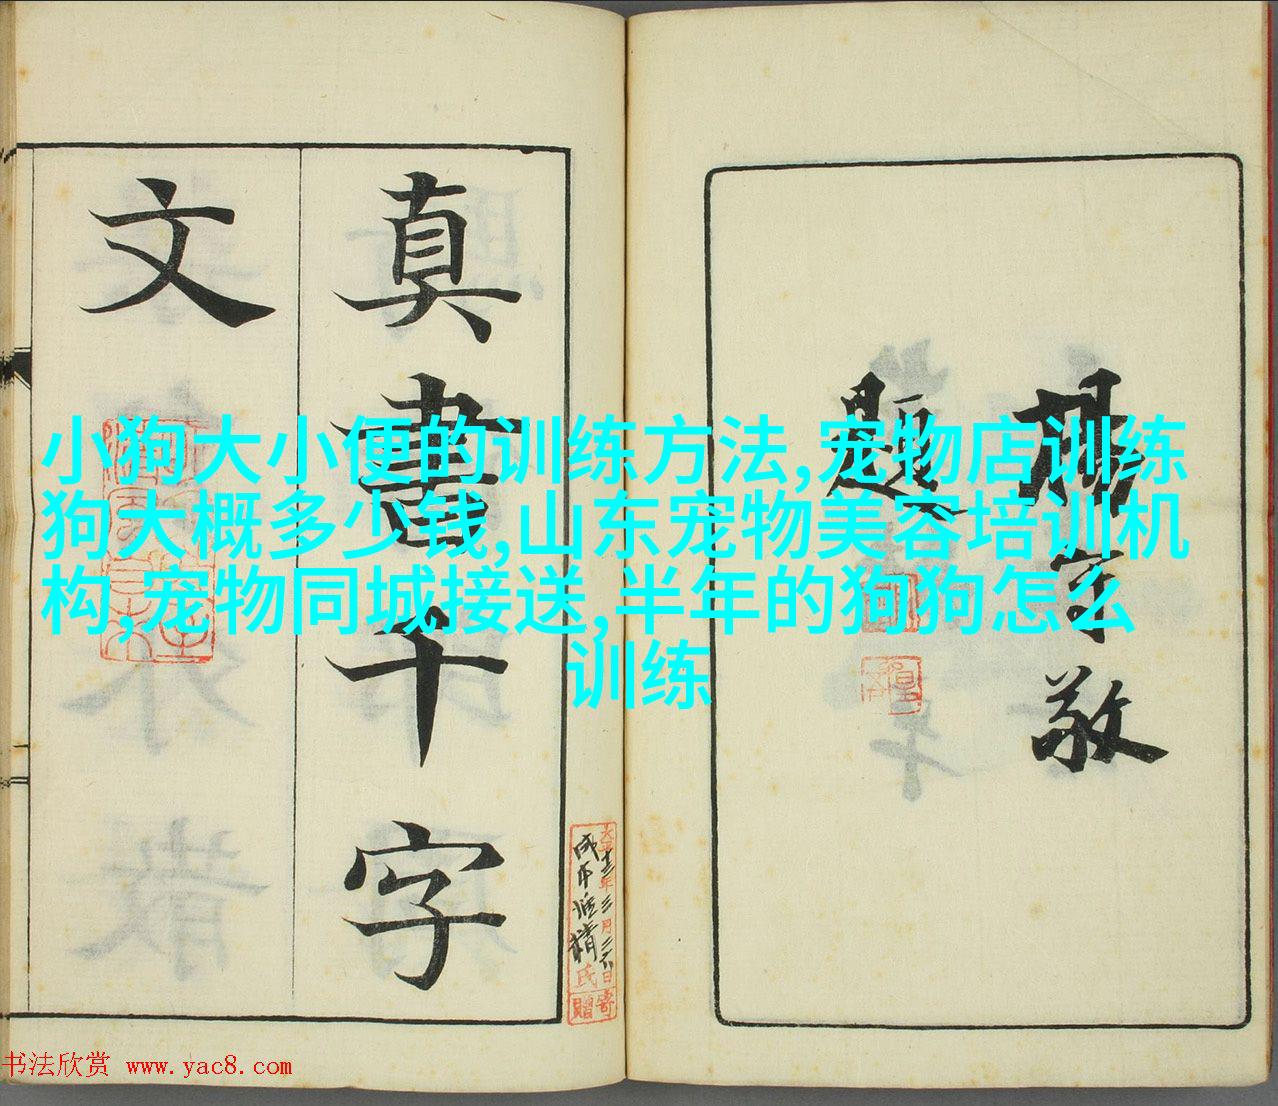 小狗大小便的训练方法,宠物店训练
狗大概多少钱,山东宠物美容培训机
构,宠物同城接送,半年的狗狗怎么
训练
題
真書千字
文
大正十三年三月二六日寄
氏
贈
书法欣赏 www.yac8.com